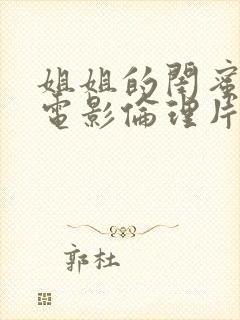 姐姐的閏蜜
電影倫理片
郭杜